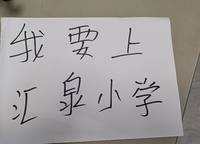 我要上
汇泉小学